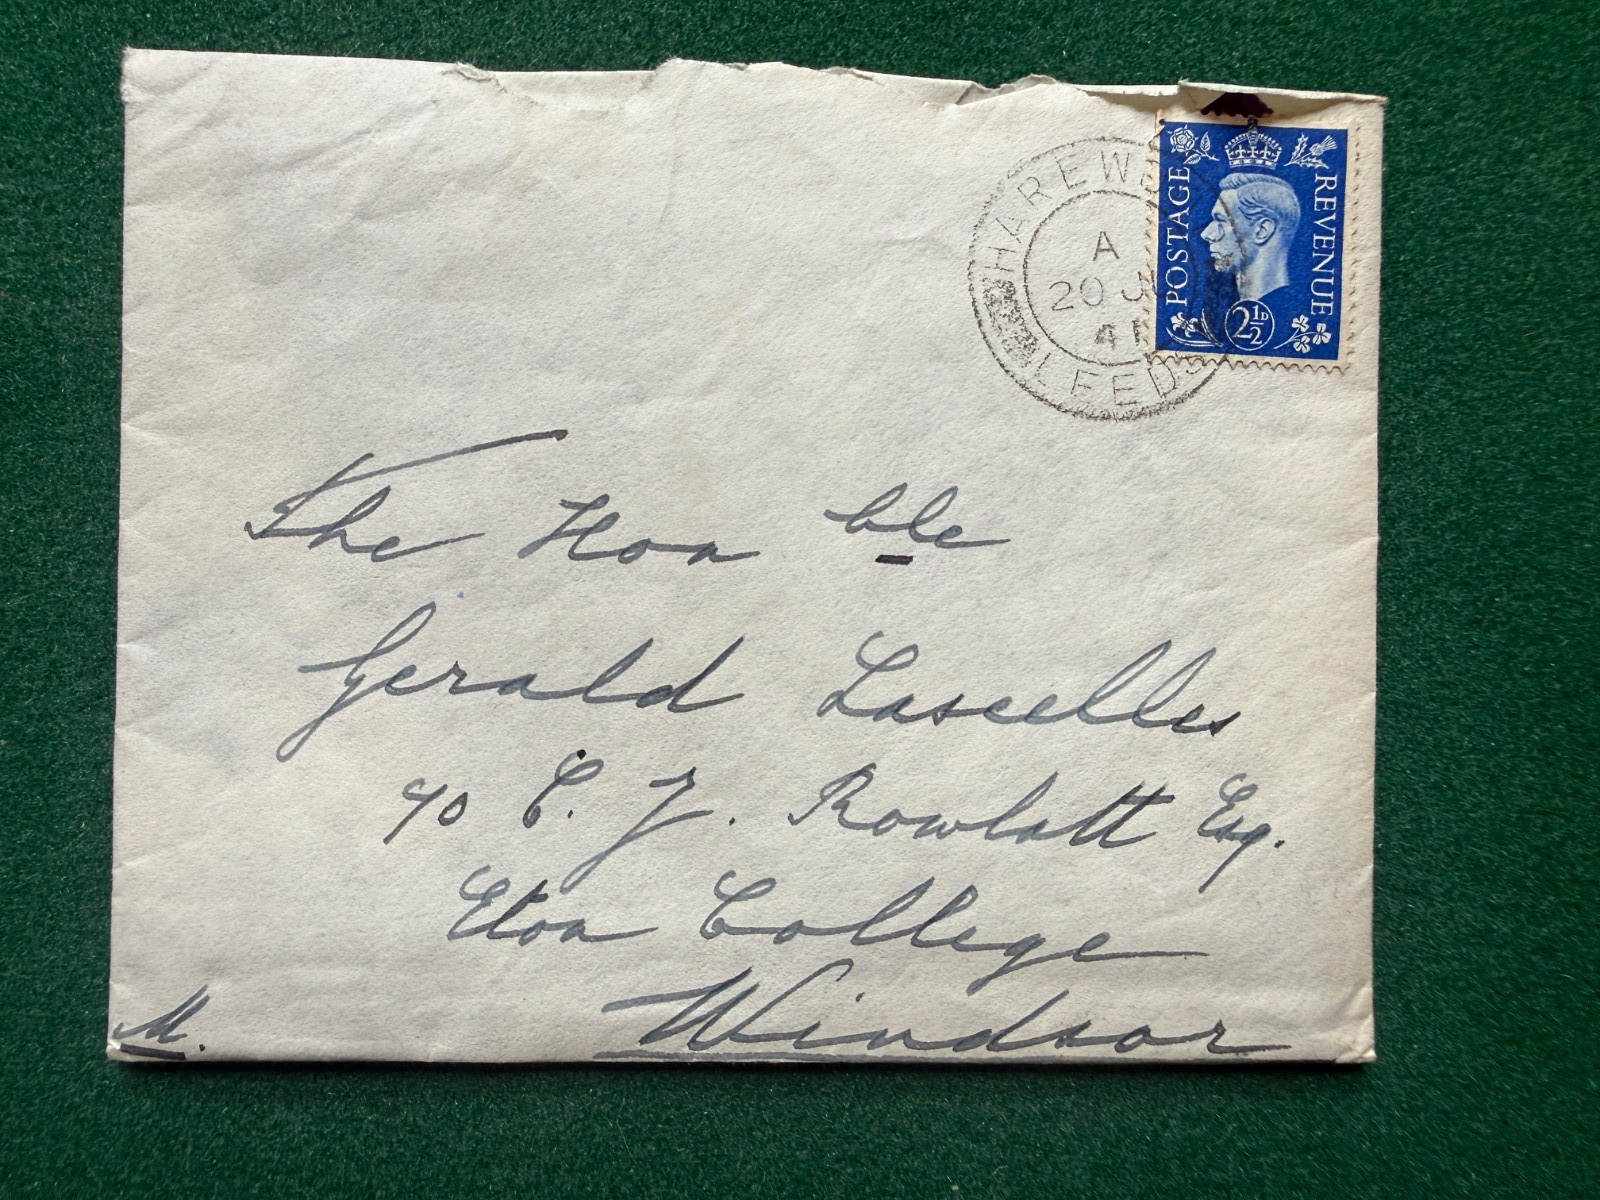 HAREWE
A
20 JU
41
LEEDS
POSTAGE
REVENUE
2½D
The Honble
Gerald Lascelles
c/o C. J. Rowlatt Esq.
Eton College
Windsor
M.